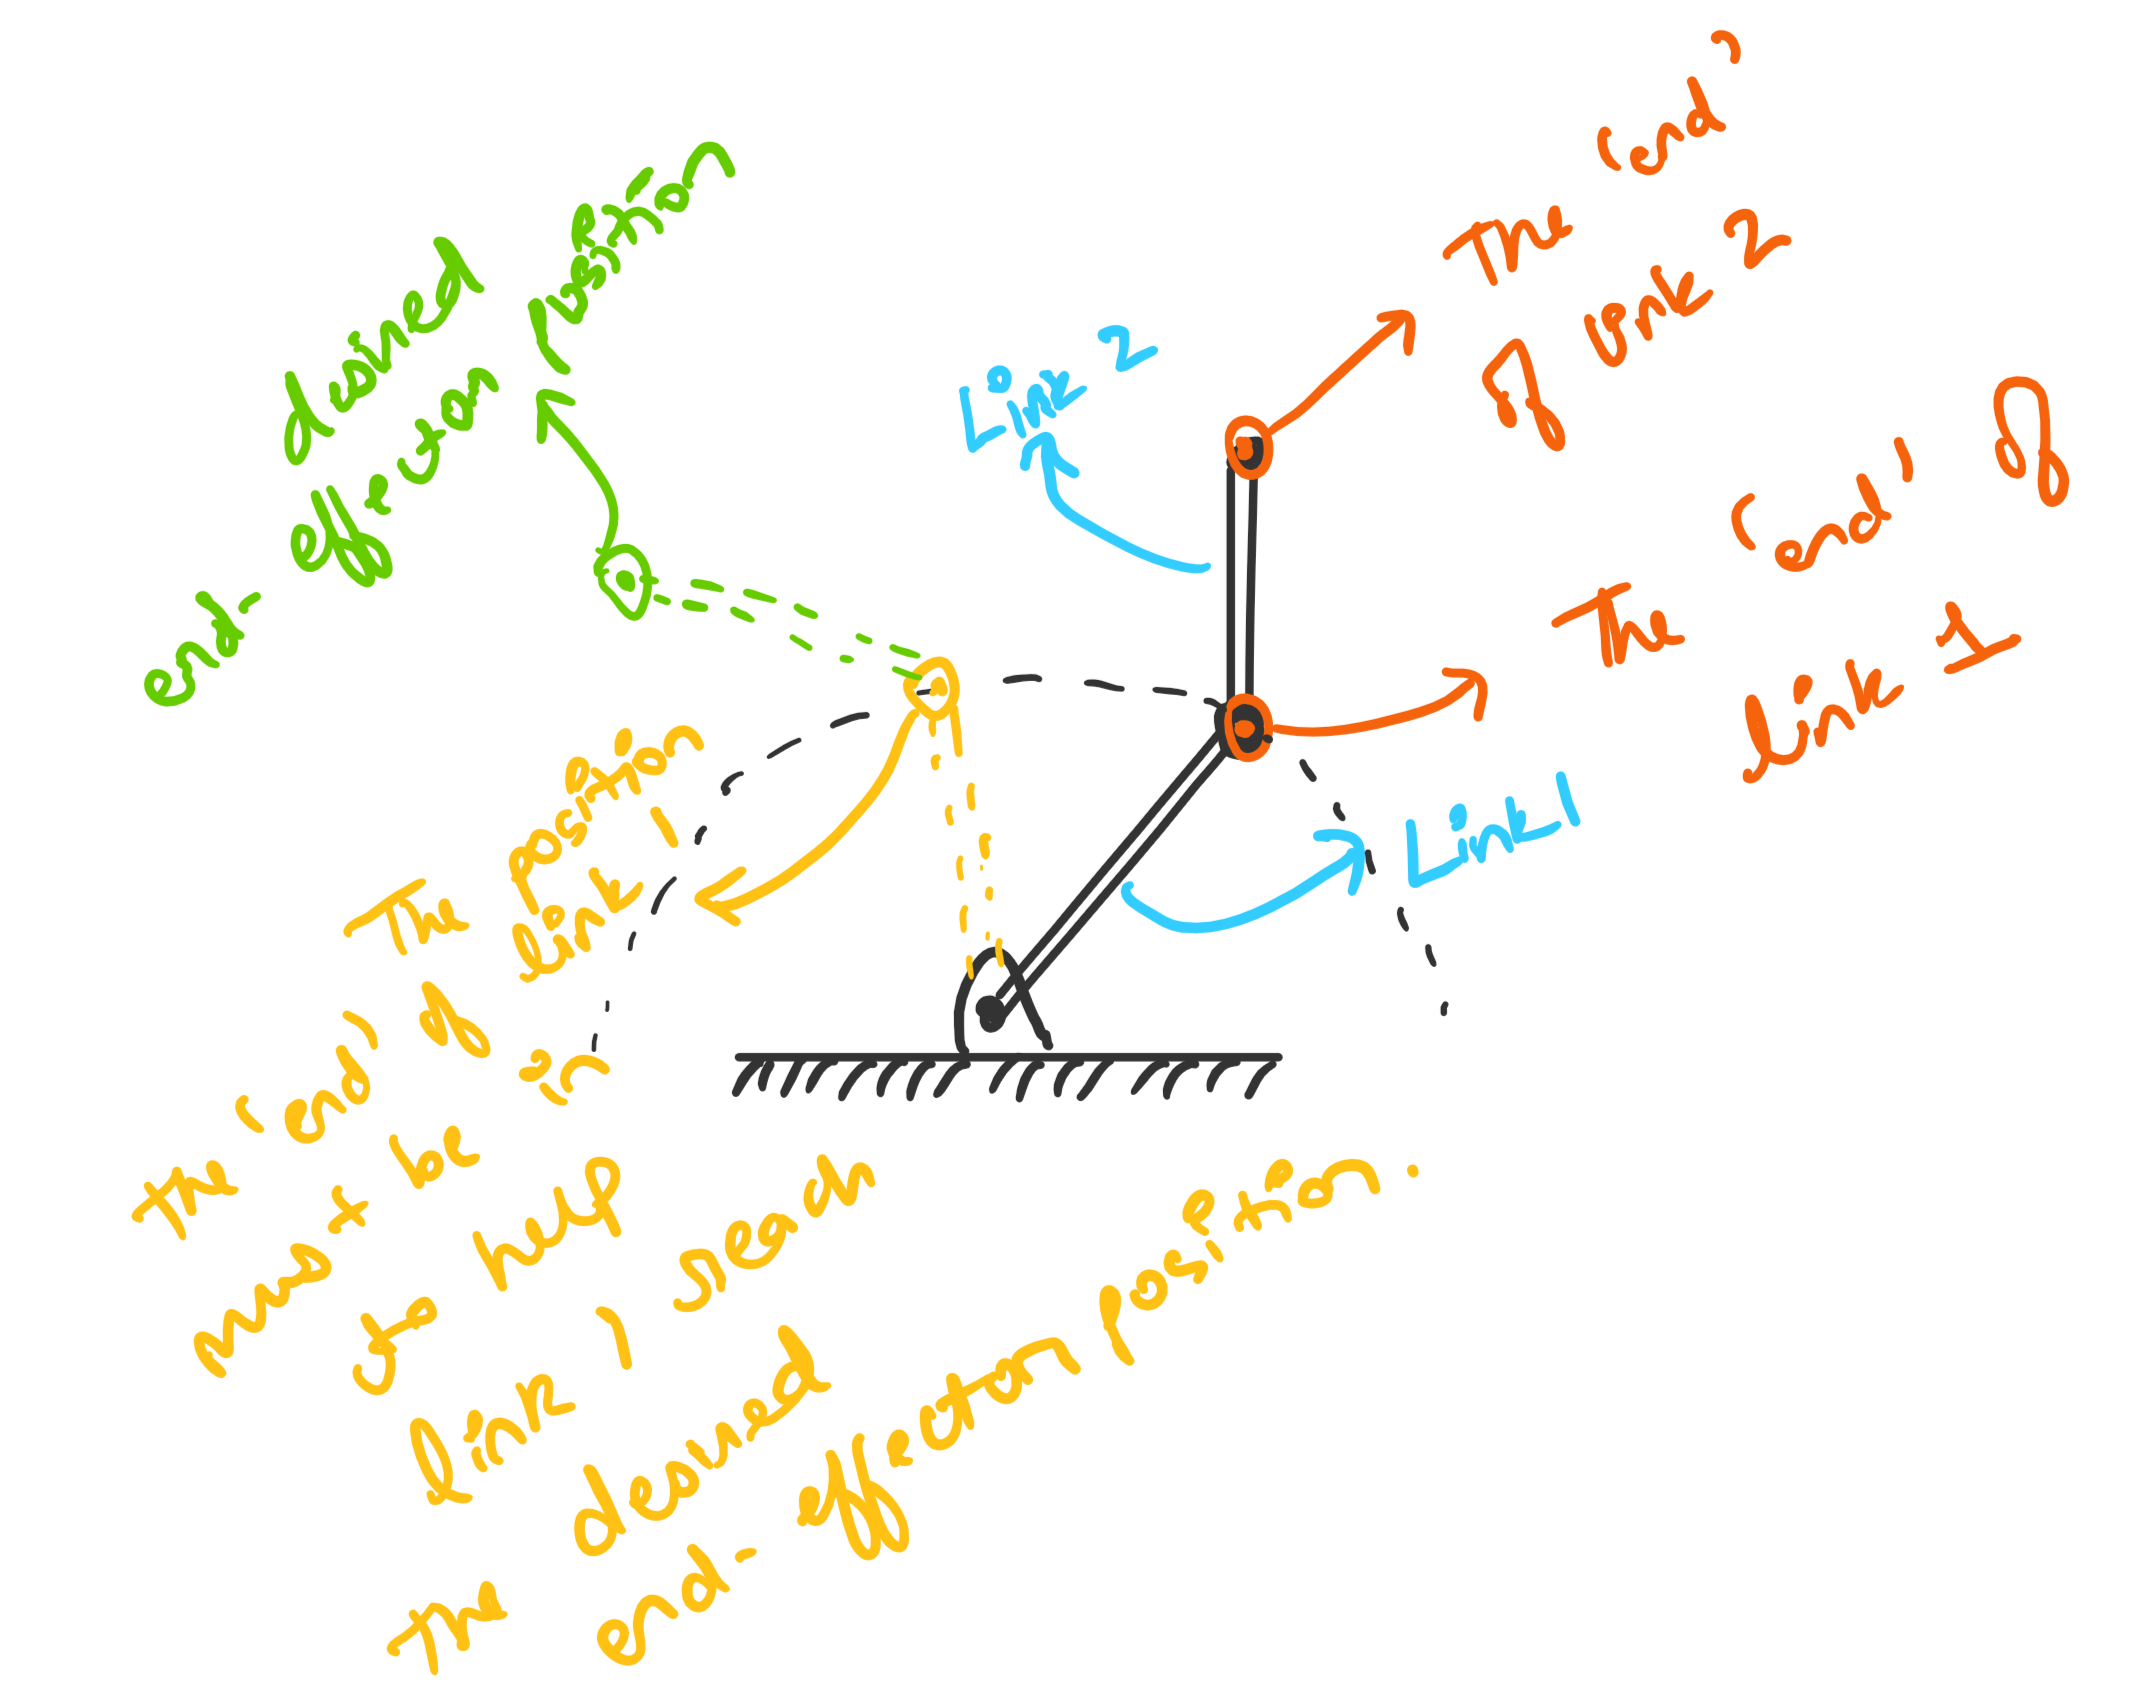 desired
end-effector position
Link 2
The 'end'
of link 2
The 'end' of
link 1
Link 1
The position
the 'end' of link 1
must be in
to help
link 1 reach
The desired
end-effector position.